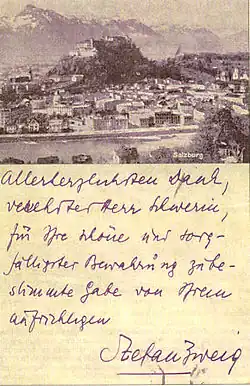 Salzburg
Allerherzlichsten Dank,
verehrter Herr Schwerin,
für Ihre schöne und sorg-
fältigster Bewahrung
stimmte Gabe von Ihrem
aufrichtigen
Stefan Zweig